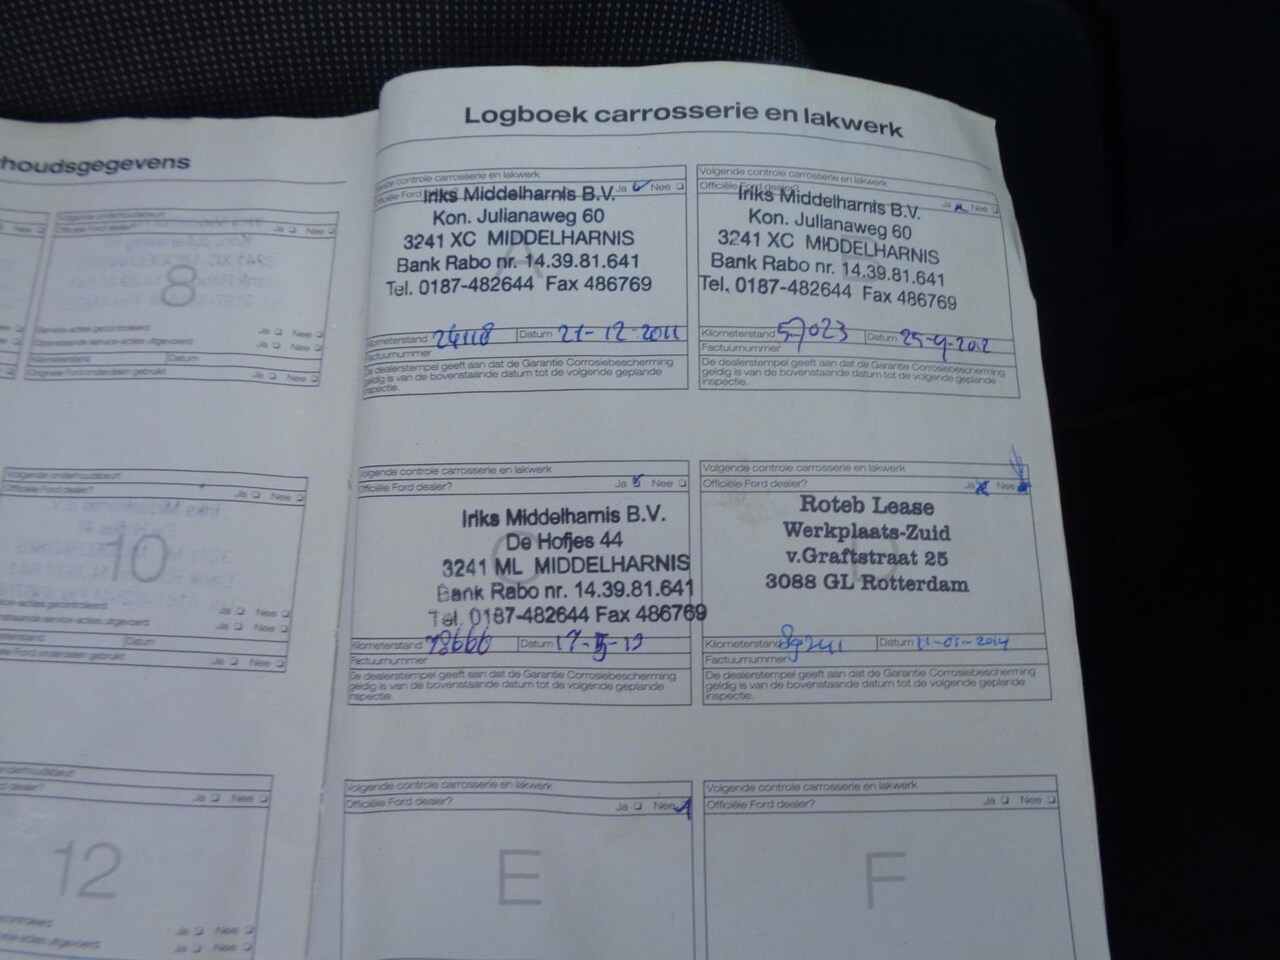 Logboek carrosserie en lakwerk
controle carrosserie en lakwerk
Officiële Ford Ja Nee
Iriks Middelharnis B.V.
Kon. Julianaweg 60
3241 XC MIDDELHARNIS
Bank Rabo nr. 14.39.81.641
Tel. 0187-482644 Fax 486769
A
Kilometerstand 24118 Datum 21-12-2011
Factuurnummer
De dealerstempel geeft aan dat de Garantie Corrosiebescherming
geldig is van bovenstaande datum tot de volgende geplande
inspectie.
Volgende controle carrosserie en lakwerk
Officiële Ford dealer? Ja Nee
Iriks Middelharnis B.V.
Kon. Julianaweg 60
3241 XC MIDDELHARNIS
Bank Rabo nr. 14.39.81.641
Tel. 0187-482644 Fax 486769
Kilometerstand 57023 Datum 25-9-2012
Factuurnummer
De dealerstempel geeft aan dat de Garantie Corrosiebescherming
geldig is van de bovenstaande datum tot de volgende geplande
inspectie.
Volgende controle carrosserie en lakwerk
Officiële Ford dealer? Ja Nee
Iriks Middelharnis B.V.
De Hofjes 44
3241 ML MIDDELHARNIS
Bank Rabo nr. 14.39.81.641
Tel. 0187-482644 Fax 486769
C
Kilometerstand 78666 Datum 17-5-13
Factuurnummer
De dealerstempel geeft aan dat de Garantie Corrosiebescherming
geldig is van de bovenstaande datum tot de volgende geplande
inspectie.
Volgende controle carrosserie en lakwerk
Officiële Ford dealer? Ja Nee
Roteb Lease
Werkplaats-Zuid
v.Graftstraat 25
3088 GL Rotterdam
D
Kilometerstand 89241 Datum 11-01-2014
Factuurnummer
De dealerstempel geeft aan dat de Garantie Corrosiebescherming
geldig is van de bovenstaande datum tot de volgende geplande
inspectie.
Volgende controle carrosserie en lakwerk
Officiële Ford dealer? Ja Nee
E
Volgende controle carrosserie en lakwerk
Officiële Ford dealer? Ja Nee
F
rhoudsgegevens
Volgende onderhoudsbeurt
Officiële Ford dealer? Ja Nee
8
Service-acties gecontroleerd Ja Nee
Ja Nee
Datum
Originele Ford onderdelen gebruikt Ja Nee
Volgende onderhoudsbeurt
Officiële Ford dealer? Ja Nee
10
Ja Nee
Ja Nee
Datum
Ja Nee
Ja Nee
12
Ja Nee
Ja Nee